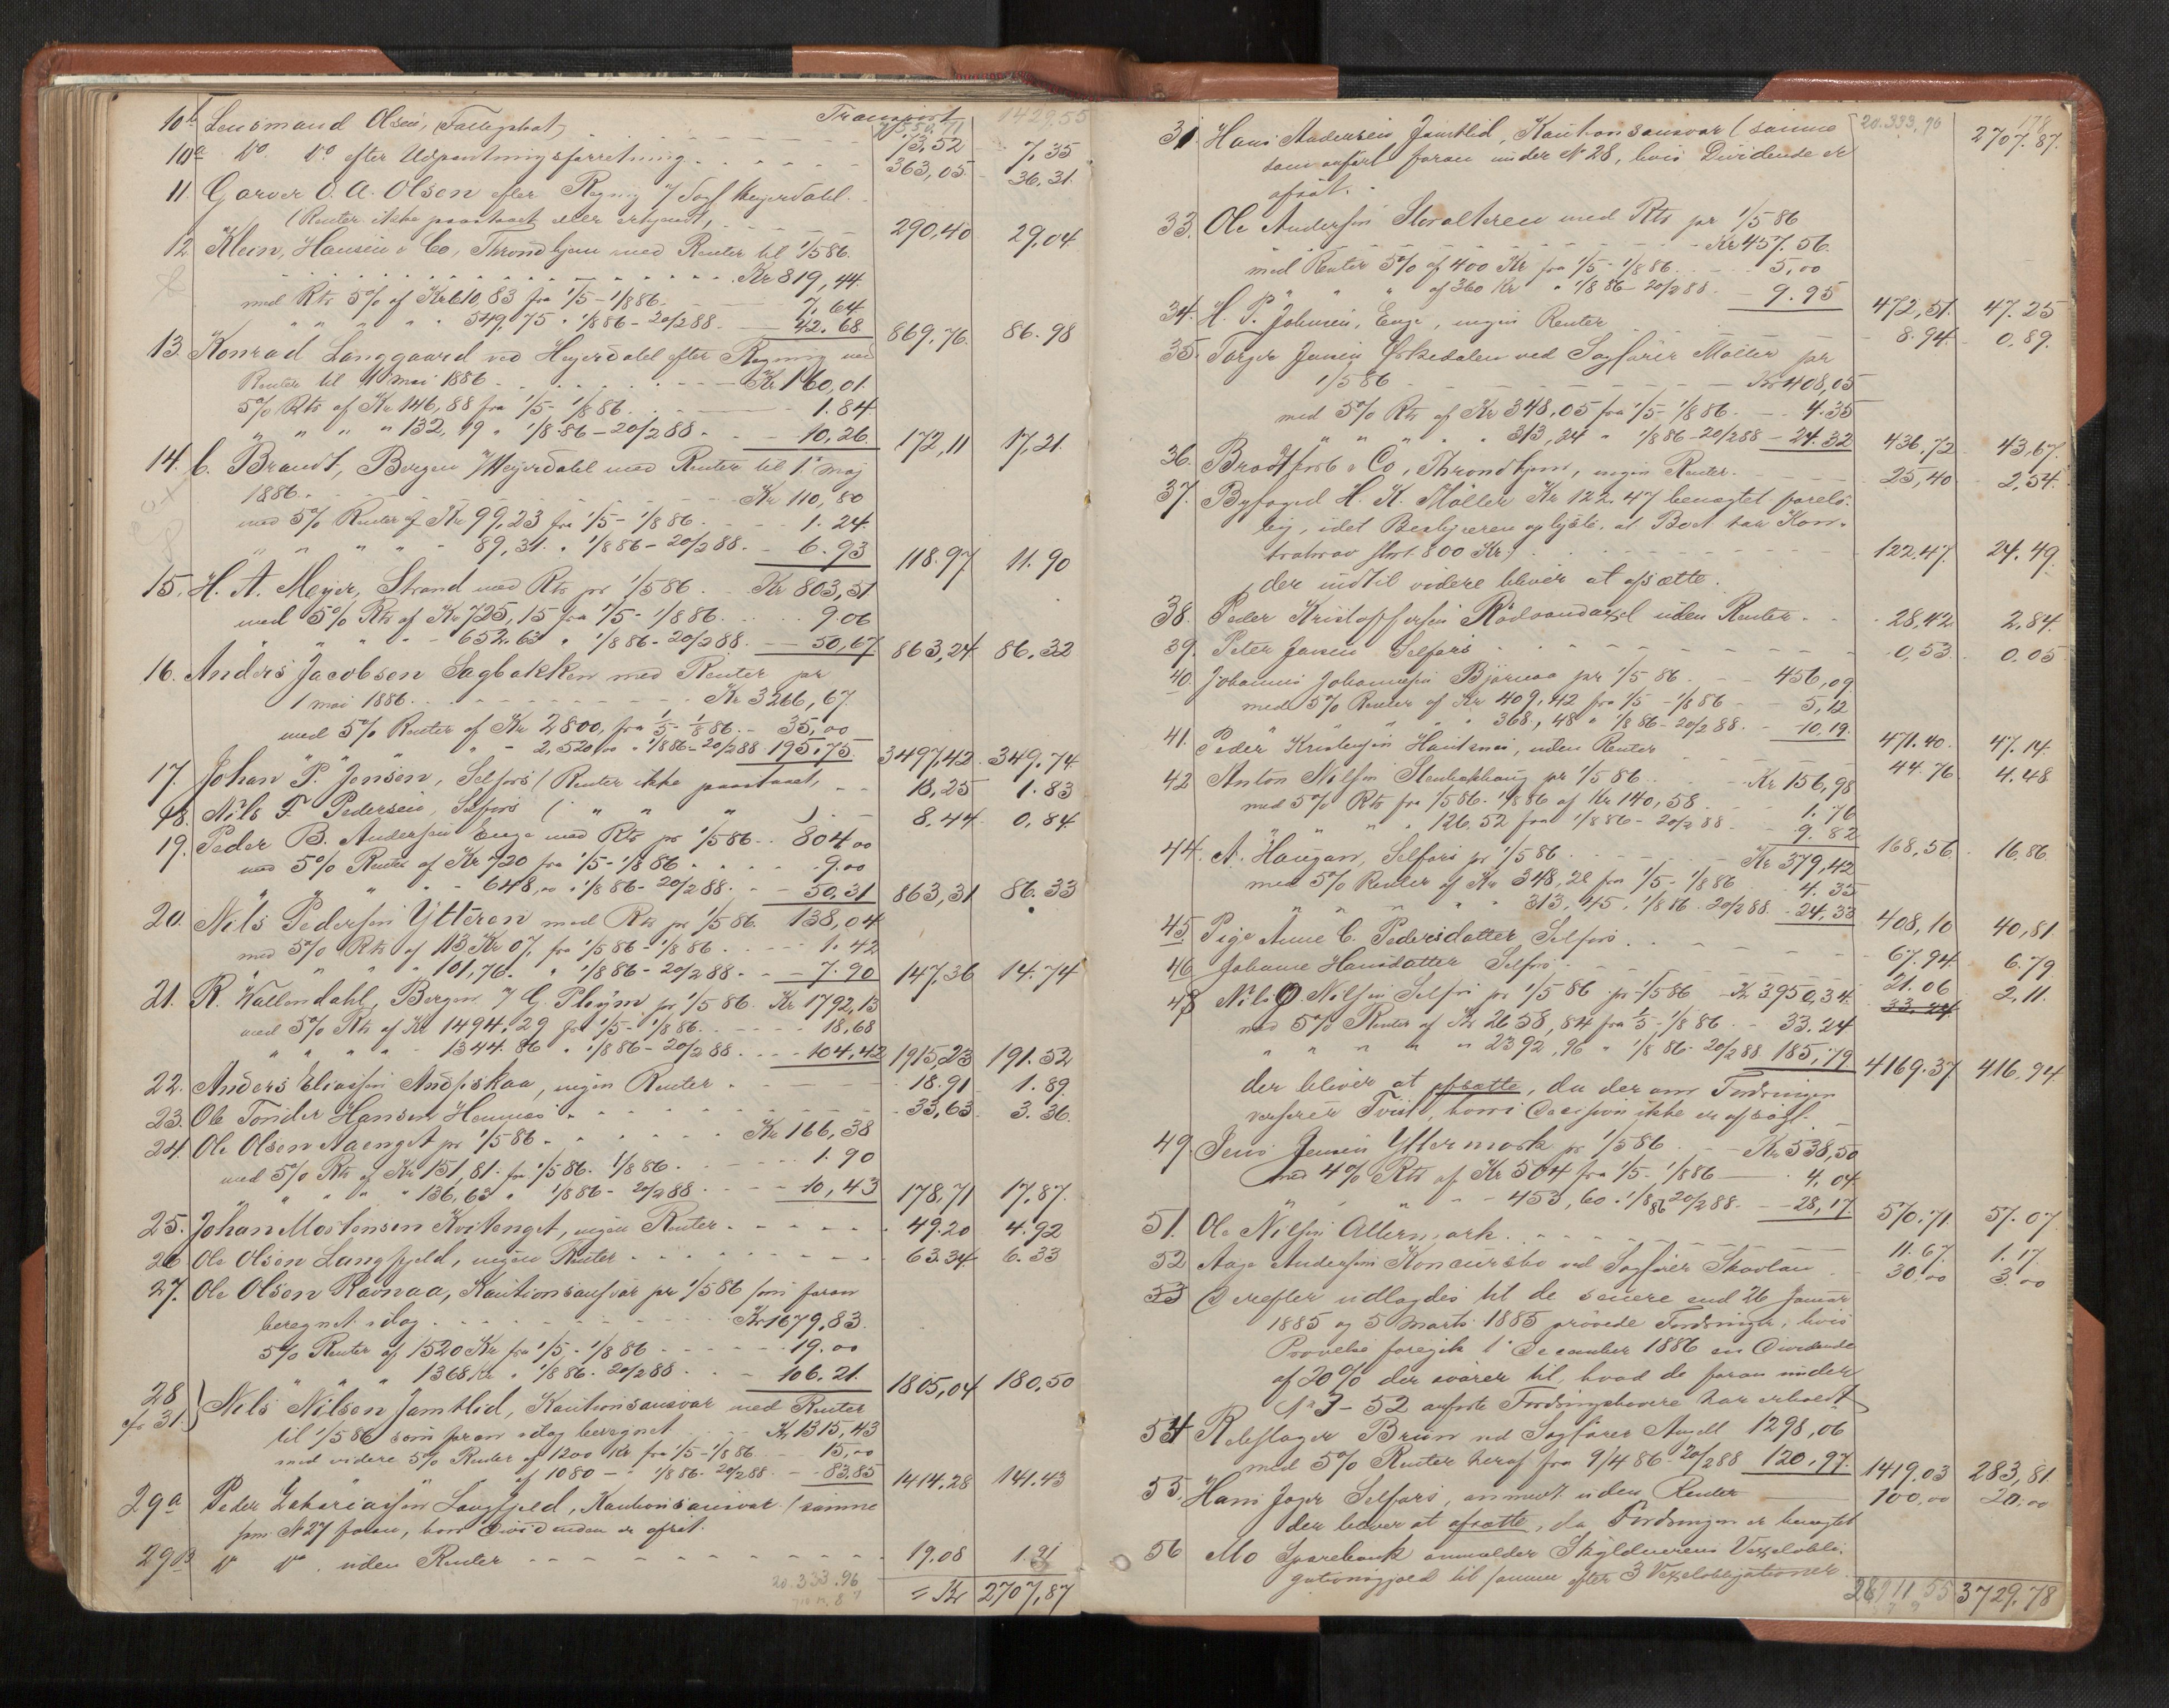 Transport 1429,55
10b Lensmand Olsen, Faldgebot 73,52 7,35
10a Do Do efter Udpantningsforretning 363,05 36,31
11. Garver O. A. Olsen efter Regning v/ Sagf. Meyerdahl
(Renter ikke paastaaet eller erkjendt) 290,40 29,04
12. Klein, Hansen & Co, Throndhjem med Renter til 1/5 86.
Kr 819,44
med Rtr 5% af Kr 610,83 fra 1/5 - 1/8 86. 7,64
" " " " 549,75 " 1/8 86 - 20/2 88. 42.68 869,76. 86.98
13. Konrad Langgaard ved Heyerdahl efter Regning med
Renter til 1 mai 1886 Kr 160,01.
5% Rtr af Kr 146,88 fra 1/5 - 1/8 86. 1.84
" " " " 132,19 " 1/8 86 - 20/2 88. 10,26 172,11 17,21.
14. C. Brandt, Bergen v/ Heyerdahl med Renter til 1. maj
1886. Kr 110,80
med 5% Renter af Kr 99,23 fra 1/5 - 1/8 86. 1.24
" " " " 89,31. " 1/8 86 - 20/2 88. 6.93 118.97 11.90
15. H. A. Meyer, Strand med Rtr pr 1/5 86. Kr 803,51
med 5% Rtr af Kr 725,15 fra 1/5 - 1/8 86. 9.06
" " " " 652.63 " 1/8 86 - 20/2 88. 50,67 863,24 86.32
16. Anders Jacobsen Sagbakken med Renter pr
1 mai 1886. Kr 3266,67.
med 5% Renter af Kr 2800, fra 1/5 - 1/8 86. 35,00
" " " " 2,520,00 " 1/8 86 - 20/2 88 195.75. 3497,42 349,74
17. Johan P. Jensen, Selfors (Renter ikke paastaaet, 18,25 1.83
18. Nils F. Pedersen, Selfors ( " " " ) 8,44 0,84
19. Peder B. Andersen Enge med Rtr pr 1/5 86. 804,00
med 5% Renter af Kr 720 fra 1/5 - 1/8 86 9.00
" " " " 648,00 " 1/8 86 - 20/2 88. 50,31 863,31 86.33
20. Nils Pedersen Ytteren med Rtr pr 1/5 86. 138,04
med 5% Rtr af 113 Kr 07, fra 1/5 86 - 1/8 86. 1.42
" " " " 101,76. " 1/8 86 - 20/2 88. 7.90 147,36 14.74
21. R. Wallendahl, Bergen v/ G. Pleym pr 1/5 86. Kr 1792,13
med 5% Rtr af Kr 1494,29 fra 1/5 - 1/8 86. 18,68
" " " " 1344.86 " 1/8 86 - 20/2 88. 104,42 1915,23 191.52
22. Anders Eliassen Andfiskaa, ingen Renter. 18.91 1.89
23. Ole Tonder Hansen Hemnes 33,63 3.36.
24. Ole Olsen Aaenget pr 1/5 86. Kr 166,38
med 5% Rtr af Kr 151,81. fra 1/5 86. 1/8 86. 1.90
" " " " 136,63 " 1/8 86 - 20/2 88. 10,43 178,71 17,87.
25. Johan Mortensen Kvitenget, ingen Renter. 49.20 4.92
26 Ole Olsen Langfjeld, ingen Renter 63.34 6.33
27. Ole Olsen Ravnaa, Kautionsansvar pr 1/5 86 som foran
beregnet idag. Kr 1679,83.
5% Renter af 1520 Kr fra 1/5 - 1/8 86 19.00
" " " 1368 Kr " 1/8 86 - 20/2 88. 106.21. 1805,04 180,50
28 cfr 31.} Nils Nilsen Jamtlid, Kautionsansvar med Renter
til 1/5 86 som foran idag beregnet Kr 1315,43
med videre 5% Renter af 1200 Kr fra 1/5 - 1/8 86 15,00
" af 1080 - " 1/8 86 - 20/2 88. 83.85 1414,28 141.43
29a Peder Zakariassen Langfjeld, Kautionsansvar (samme
som No 27 foran, hvor Dividenden er afsat.
29b Do Do. uden Renter 19.08 1.91
20.333.96 = Kr 2707,87
31. Hans Andersen Jamtlid, Kautionsansvar (samme 20.333,96 2707.87.
som anført foran under No 28, hvis Dividende er
afsat.
33. Ole Andersen Storalteren med Rtr pr 1/5 86
Kr 457.56.
med Renter 5% af 400 Kr fra 1/5 - 1/8 86. 5,00
" " " af 360 Kr " 1/8 86 - 20/2 88. 9.95 472,51. 47.25
34. H. P. Johnsen, Enge, ingen Renter 8.94 0,89.
35. Torger Jensen Eskedalen ved Sagfører Møller pr
1/5 86 Kr 408,05
med 5% Rtr af Kr 348,05 fra 1/5 - 1/8 86. 4.35
" " " " 313,24 " 1/8 86 - 20/2 88 24.32 436,72 43,67.
36. Brodtkorb & Co, Throndhjem, ingen Renter. 25,40 2,54.
37. Byfoged H. K. Møller Kr 122.47 benægtet forelø-
big, idet Bestyreren oplyste, at Boet har Kon-
trakrav stort 800 Kr.) 122.47. 24.49.
der indtil videre bliver at afsætte.
38. Peder Kristoffersen Rødvandaxel uden Renter. 28,42 2,84.
39. Peter Jensen Selfors 0,53. 0.05
40. Johannes Johannesen Bjørnaa pr 1/5 86. 456,09.
med 5% Renter af Kr 409,42 fra 1/5 - 1/8 86 5,12
" " " " 368,48 " 1/8 86 - 20/2 88. 10.19. 471.40. 47.14.
41. Peder Kristensen Hauknes, uden Renter 44.76 4.48
42 Anton Nilsen Stenbekhaug pr 1/5 86. Kr 156,98
med 5% Rtr fra 1/5 86 - 1/8 86 af Kr 140,58. 1.76
" " " " 126,52 fra 1/8 86 - 20/2 88. 9.82 168,56 16,86.
44. A. Haugan, Selfors pr 1/5 86. Kr 379,42
med 5% Renter af Kr 348,28 fra 1/5 - 1/8 86 4.35
" " " " 313,45. 1/8 86 - 20/2 88. 24,33 408,10 40,81.
45. Pige Anne C. Pedersdatter Selfors. 67.94 6.79
46 Johanne Hansdatter Selfors 21.06 2,11.
48 Nils O Nilsen Selfors pr 1/5 86 pr 1/5 86 Kr 3950,34. 33.24
med 5% Renter af Kr 2658,84 fra 1/5 - 1/8 86. 33.24
" " " " 2392,96 " 1/8 86 - 20/2 88 185,79 4169.37 416.94
der bliver at afsætte, da der om Fordringen
verserer Tvist, hvori Decision ikke er afsagt.
49. Jens Jensen Yttermork pr 1/5 86 Kr 538,50
med 4% Rtr af Kr 504 fra 1/5 - 1/8 86 4,04
" " " 453,60. 1/8 86 20/2 88. 28,17. 570.71. 57.07
51. Ole Nilsen Altermark. 11.67. 1.17.
52 Aage Andersens Konkursbo ved Sagfører Skavlan 30.00 3.00
53 Derefter udlagdes til de senere end 26 Januar
1885 og 5 Marts 1885 prøvede Fordringer, hvis
Prøvelse foregik 1 December 1886 en Dividende
af 20% der svarer til, hvad de foran under
No 3 - 52 anførte Fordringshavere har erholdt
54 Rebslager Bruun ved Sagfører Angell 1298,06
med 5% Renter heraf fra 9/4 86 - 20/2 88 120,97. 1419.03 283,81.
55. Hans Jager Selfors, anmeldt uden Renter 100,00 20.00
der bliver at afsætte, da Fordringen er benægtet
56 Mo Sparebank anmelder Skyldnerens Vexelobli-
gationsgjæld til samme efter 3 Vexelobligationer.
3729,78